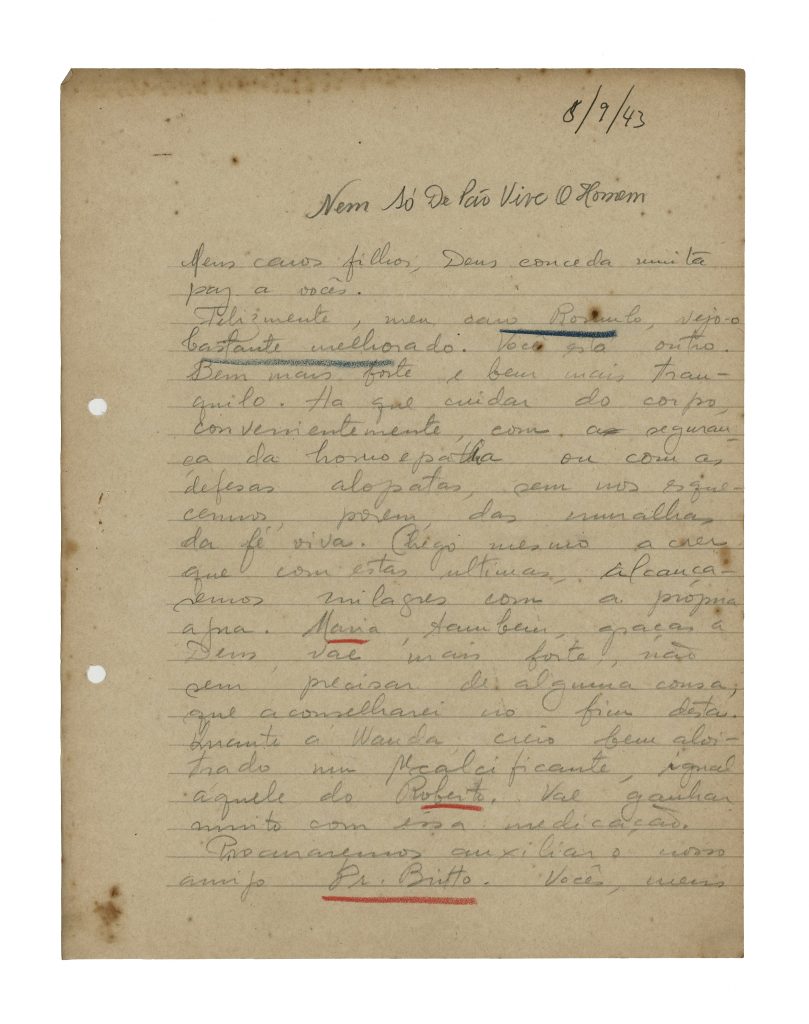 8/9/43
Nem Só De Pão Vive O Homem
Meus caros filhos, Deus conceda muita
paz a vocês.
Felizmente, meu caro Romulo, vejo-o
bastante melhorado. Você está outro.
Bem mais forte e bem mais tran-
quilo. Ha que cuidar do corpo,
convenientemente, com a seguran-
ça da homoepatha ou com as
defesas alopatas, sem nos esque-
cermos, porem, das muralhas
da fé viva. Chego mesmo a crer
que com estas ultimas, alcança-
remos milagres com a própria
agua. Maria, tambem, graças a
Deus, vae mais forte, não
sem precisar de alguma cousa,
que aconselharei no fim desta.
Quanto á Wanda creio bem alvi-
trado um recalcificante, igual
áquele do Roberto. Vae ganhar
muito com essa medicação.
Procuraremos auxiliar o nosso
amigo Dr. Britto. Vocês, meus